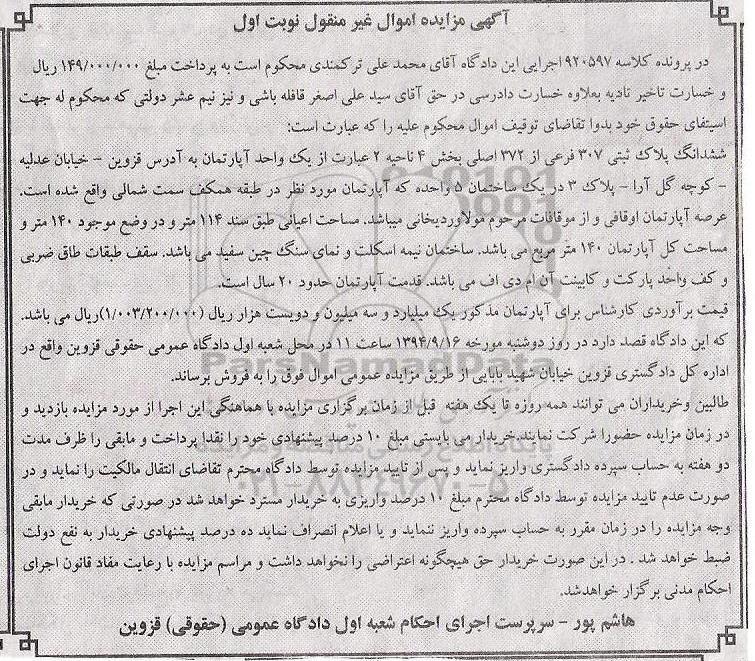 آگهی مزایده اموال غیر منقول نوبت اول
در پرونده کلاسه ۹۲۰۵۹۷ اجرایی این دادگاه آقای محمد علی ترکمندی محکوم است به پرداخت مبلغ ۱۴۹/۰۰۰/۰۰۰ ریال
و خسارت تاخیر تادیه بعلاوه خسارت دادرسی در حق آقای سید علی اصغر قافله باشی و نیز نیم عشر دولتی که محکوم له جهت
استیفای حقوق خود بدوا تقاضای توقیف اموال محکوم علیه را که عبارت است:
ششدانگ پلاک ثبتی ۳۰۷ فرعی از ۳۷۲ اصلی بخش ۴ ناحیه ۲ عبارت از یک واحد آپارتمان به آدرس قزوین - خیابان عدلیه
- کوچه گل آرا - پلاک ۳ در یک ساختمان ۵ واحده که آپارتمان مورد نظر در طبقه همکف سمت شمالی واقع شده است.
عرصه آپارتمان اوقافی و از موقافات مرحوم مولاوردیخانی میباشد. مساحت اعیانی طبق سند ۱۱۴ متر و در وضع موجود ۱۴۰ متر و
مساحت کل آپارتمان ۱۴۰ متر مربع می باشد. ساختمان نیمه اسکلت و نمای سنگ چین سفید می باشد. سقف طبقات طاق ضربی
و کف واحد پارکت و کابینت آن ام دی اف می باشد. قدمت آپارتمان حدود ۲۰ سال است.
قیمت برآوردی کارشناس برای آپارتمان مذکور یک میلیارد و سه میلیون و دویست هزار ریال (۱/۰۰۳/۲۰۰/۰۰۰)ریال می باشد.
که این دادگاه قصد دارد در روز دوشنبه مورخه ۱۳۹۴/۹/۱۶ ساعت ۱۱ در محل شعبه اول دادگاه عمومی حقوقی قزوین واقع در
اداره کل دادگستری قزوین خیابان شهید بابایی از طریق مزایده عمومی اموال فوق را به فروش برساند.
طالبین وخریداران می توانند همه روزه تا یک هفته قبل از زمان برگزاری مزایده با هماهنگی این اجرا از مورد مزایده بازدید و
در زمان مزایده حضورا شرکت نمایند.خریدار می بایستی مبلغ ۱۰ درصد پیشنهادی خود را نقدا پرداخت و مابقی را ظرف مدت
دو هفته به حساب سپرده دادگستری واریز نماید و پس از تایید مزایده توسط دادگاه محترم تقاضای انتقال مالکیت را نماید و در
صورت عدم تایید مزایده توسط دادگاه محترم مبلغ ۱۰ درصد واریزی به خریدار مسترد خواهد شد در صورتی که خریدار مابقی
وجه مزایده را در زمان مقرر به حساب سپرده واریز ننماید و یا اعلام انصراف نماید ده درصد پیشنهادی خریدار به نفع دولت
ضبط خواهد شد . در این صورت خریدار حق هیچگونه اعتراضی را نخواهد داشت و مراسم مزایده با رعایت مفاد قانون اجرای
احکام مدنی برگزار خواهدشد.
هاشم پور - سرپرست اجرای احکام شعبه اول دادگاه عمومی (حقوقی) قزوین
ParsNamadData
۰۲۱-۸۸۳۴۹۶۷۰-۵